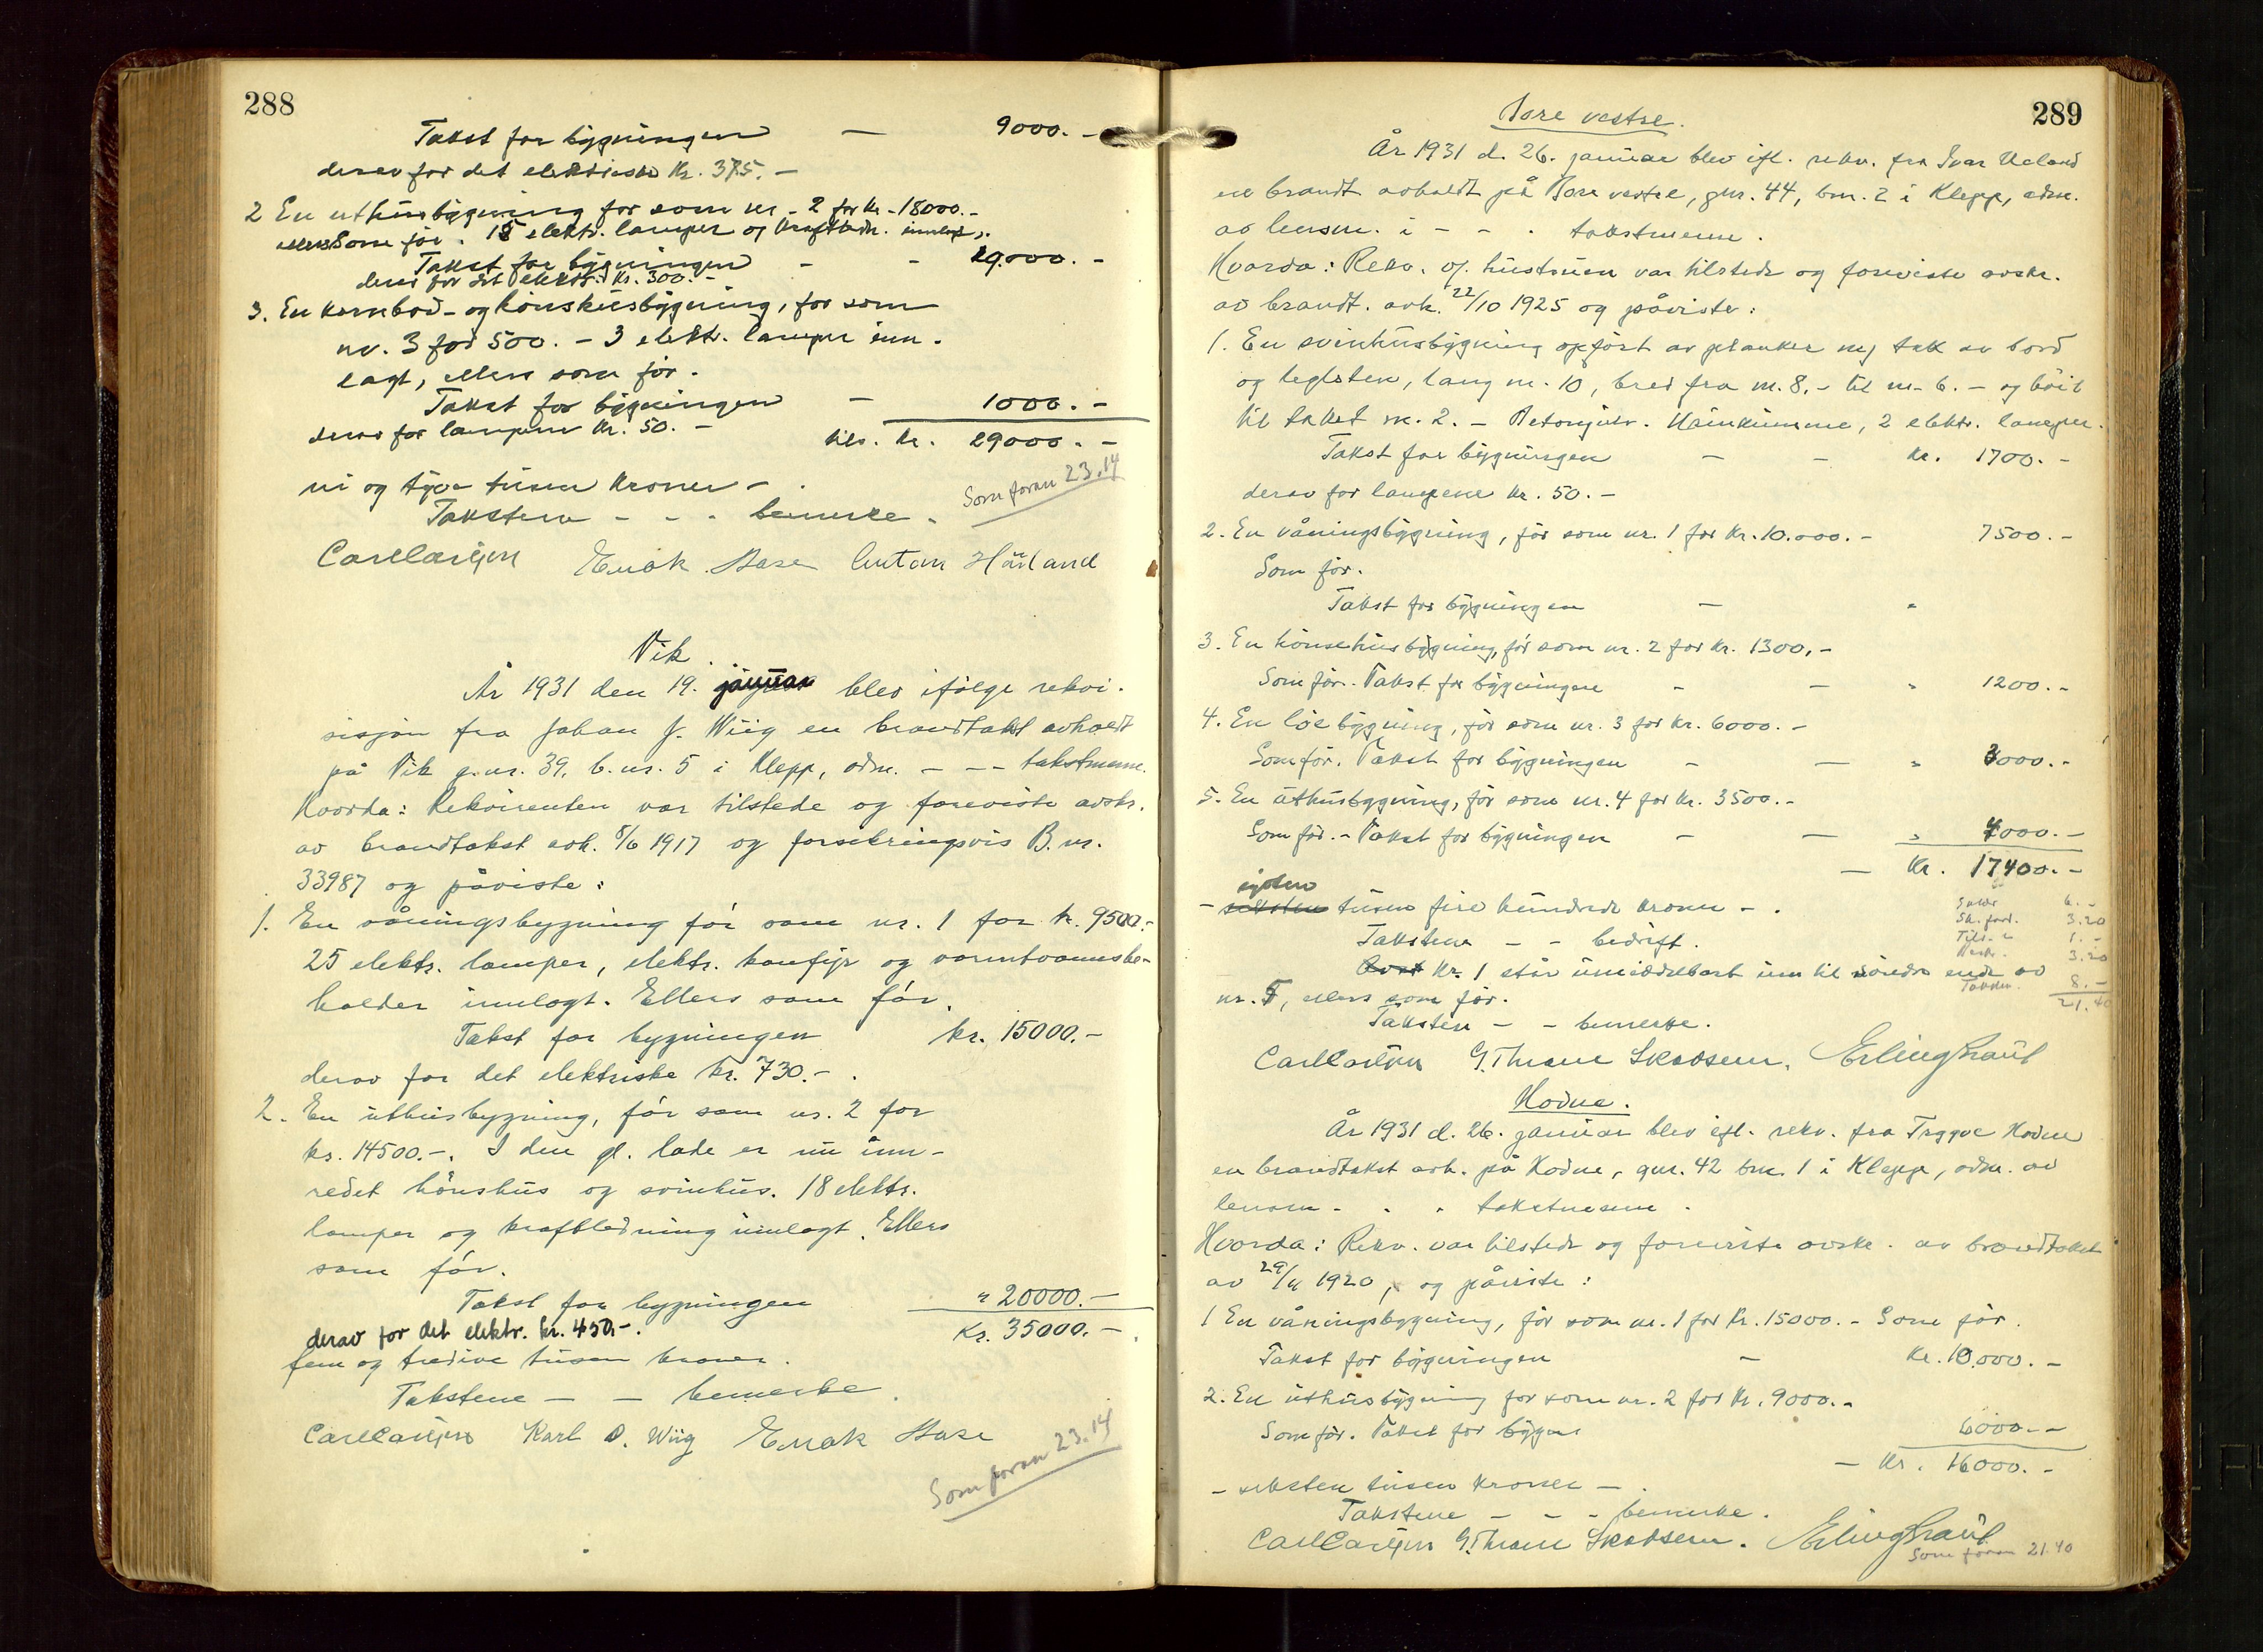 288
Takst for bygningen — 9000.-
derav for det elektriske Kr. 375.-
2 En uthusbygning før som nr. 2 for Kr. 18000.-
ellers Som før. 15 elektr. lamper og kraftledn. innlagt.
Takst for bygningen - - 19.000.-
derav for det elektr. Kr. 300.-
3. En kornbod- og hønsehusbygning, før som
nr. 3 for 500.- 3 elektr. lamper inn-
lagt, ellers som før.
Takst for bygningen — 1000.-
derav for lampene Kr. 50.-
tils. kr. 29000.-
ni og tyve tusen kroner -.
Som foran 23.14
Takstene - - - bemerke.
Carl Carlsen Enok Hase Anton Håland
Vik.
År 1931 den 19. januar blev ifølge rekvi-
sisjon fra Johan J. Wiig en brandtakst avholdt
på Vik g.nr. 39, b.nr. 5 i Klepp, adm. - - - takstmenn.
Hvorda: Rekvirenten var tilstede og foreviste avskr.
av brandtakst avh. 8/6 1917 og forsikringsvis B.nr.
33987 og påviste:
1. En våningsbygning før som nr. 1 for kr. 9500.-
25 elektr. lamper, elektr. komfyr og varmtvannsbe-
holder innlagt. Ellers som før.
Takst for bygningen kr. 15000.-
derav for det elektriske kr. 730.-.
2. En uthusbygning, før som nr. 2 for
kr. 14500.-. I den gl. lade er nu inn-
redet hønshus og svinhus. 18 elektr.
lamper og kraftledning innlagt. Ellers
som før.
Takst for bygningen " 20000.-
derav for det elektr. kr. 450.-. Kr. 35000.-.
fem og tredive tusen kroner.
Takstene — — bemerke.
Carl Carlsen Karl O. Wiig Enok Hase
Som foran 23.14
289
Bore vestre.
År 1931 d. 26. januar blev ifl. rekv. fra Ivar Ueland
en brandt avholdt på Bore vestre, gnr. 44, bnr. 2 i Klepp, adm.
av lensm. i - - . takstmenn.
Hvorda: Rekv. og hustruen var tilstede og foreviste avskr.
av brandt. avh. 22/10 1925 og påviste:
1. En svinhusbygning opført av planker m/ tak av bord
og teglsten, lang m. 10, bred fra m. 8,- til m. 6.- og høid
til taket m. 2.- Betongulv. 2 elektr. lamper.
Takst for bygningen - - Kr. 1700.-
derav for lampene Kr. 50.-
2. En våningsbygning, før som nr. 1 for Kr. 10.000.- 7500.-
Som før.
Takst for bygningen — "
3. En hønsehusbygning, før som nr. 2 for Kr. 1300.-
Som før. Takst for bygningen - — " 1200.-
4. En løebygning, før som nr. 3 for Kr. 6000.-
Som før. Takst for bygningen - — " 3000.-
5. En uthusbygning, før som nr. 4 for Kr. 3500.-
Som før. - Takst for bygningen - — " 4000.-
— Kr. 17400.-
sytten
- seksten tusen fire hundrede kroner -.
6.-
Sk. ford. 3.20
Tils. " 1.-
3.20
8.-
21.40
Takstene - - bedrift.
Nr. 1 står umiddelbart inn til søndre ende av
nr. 5, ellers som før.
Takstene - - bemerke.
Carl Carlsen G. Thrane Skadsem. Erling Graul
Hodne.
År 1931 d. 26. januar blev ifl. rekv. fra Trygve Hodne
en brandtakst avh. på Hodne, gnr. 42 bnr. 1 i Klepp, adm. av
lensm - . . takstmenn.
Hvorda: Rekv. var tilstede og foreviste avskr. av brandtakst
av 29/4 1920, og påviste:
1 En våningsbygning, før som nr. 1 for Kr. 15000.- Som før.
Takst for bygningen — Kr. 10.000.-
2. En uthusbygning før som nr. 2 for Kr. 9000.-
Som før. Takst for bygn. 6000.-
— Kr. 16000.-
- seksten tusen kroner -.
Takstene - - - bemerke.
Carl Carlsen G. Thrane Skadsem. Erling Graul
Som foran 21.40